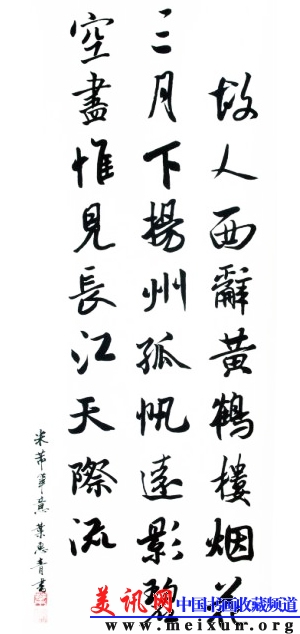 故人西辭黃鶴樓烟花
三月下揚州孤帆遠影碧
空盡惟見長江天際流
米芾筆意 葉惠青書
美讯网 中国书画收藏频道
www.meixun.org